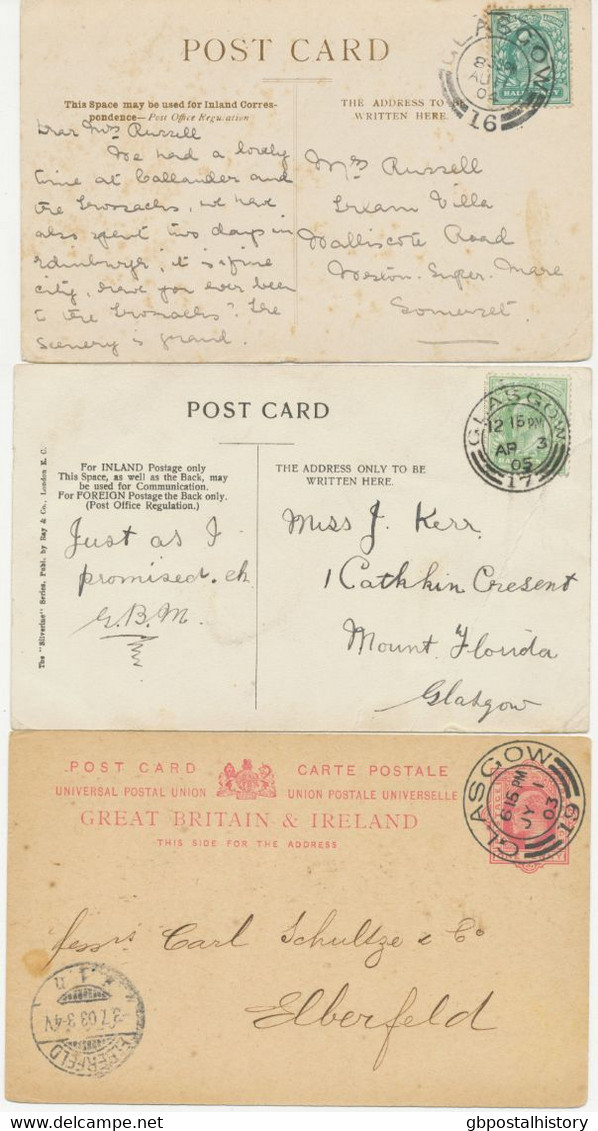 POST CARD
This Space may be used for Inland Corres-
pondence—Post Office Regulation
THE ADDRESS TO BE
WRITTEN HERE.
GLASGOW
AU
16
HALF
Dear Mrs Russell
We had a lovely
time at Callander and
the Trossachs, we have
also spent two days in
Edinburgh, it is a fine
city, have you ever been
to the Trossachs? The
scenery is grand.
Mrs Russell
Villa
Walliscote Road
Weston-Super-Mare
Somerset.
POST CARD
GLASGOW
12 15 PM
AP 3
05
17
For INLAND Postage only
This Space, as well as the Back, may
be used for Communication.
For FOREIGN Postage the Back only.
(Post Office Regulation.)
THE ADDRESS ONLY TO BE
WRITTEN HERE.
The "Silverine" Series. Publ. by Ray & Co., London E. C.
Just as I
promised. eh
G.B.M.
Miss J. Kerr
1 Cathkin Cresent
Mount Florida
Glasgow
POST CARD CARTE POSTALE
UNIVERSAL POSTAL UNION UNION POSTALE UNIVERSELLE
GREAT BRITAIN & IRELAND
THIS SIDE FOR THE ADDRESS
GLASGOW
6 15 PM
JY 1
03
19
Messrs Carl Schultze & Co
Elberfeld
ELBERFELD
3.7.03.3-4N
* 1 n
gbpostalhistory
www.delcampe.net